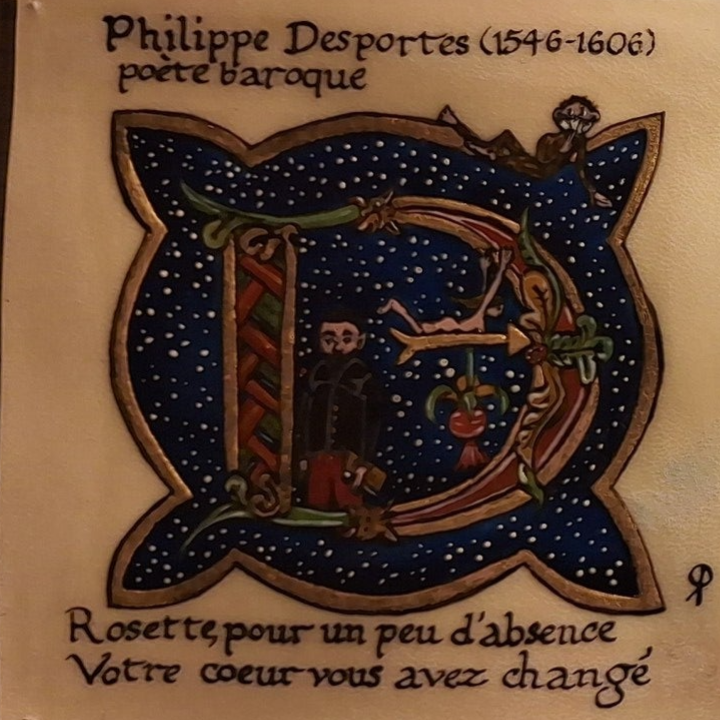 Philippe Desportes (1546-1606)
poète baroque
D
Rosette, pour un peu d'absence
Votre coeur vous avez changé